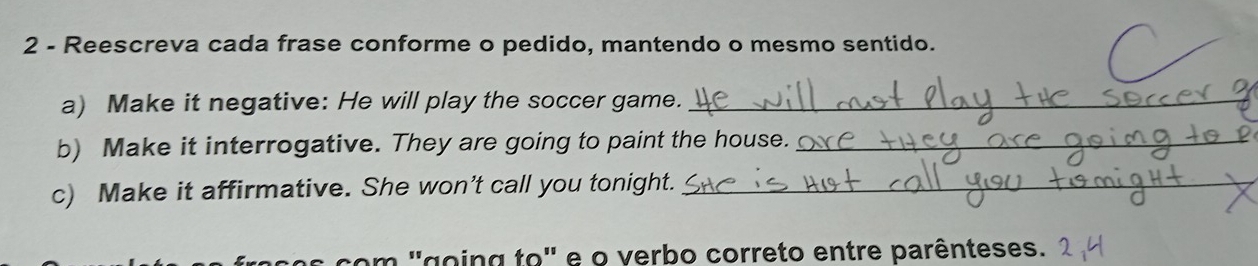 2 - Reescreva cada frase conforme o pedido, mantendo o mesmo sentido. C
a) Make it negative: He will play the soccer game. He will not play the soccer g
b) Make it interrogative. They are going to paint the house. are they are going to p
c) Make it affirmative. She won't call you tonight. She is Hot call you tonight. X
frases com "going to" e o verbo correto entre parênteses. 2,4